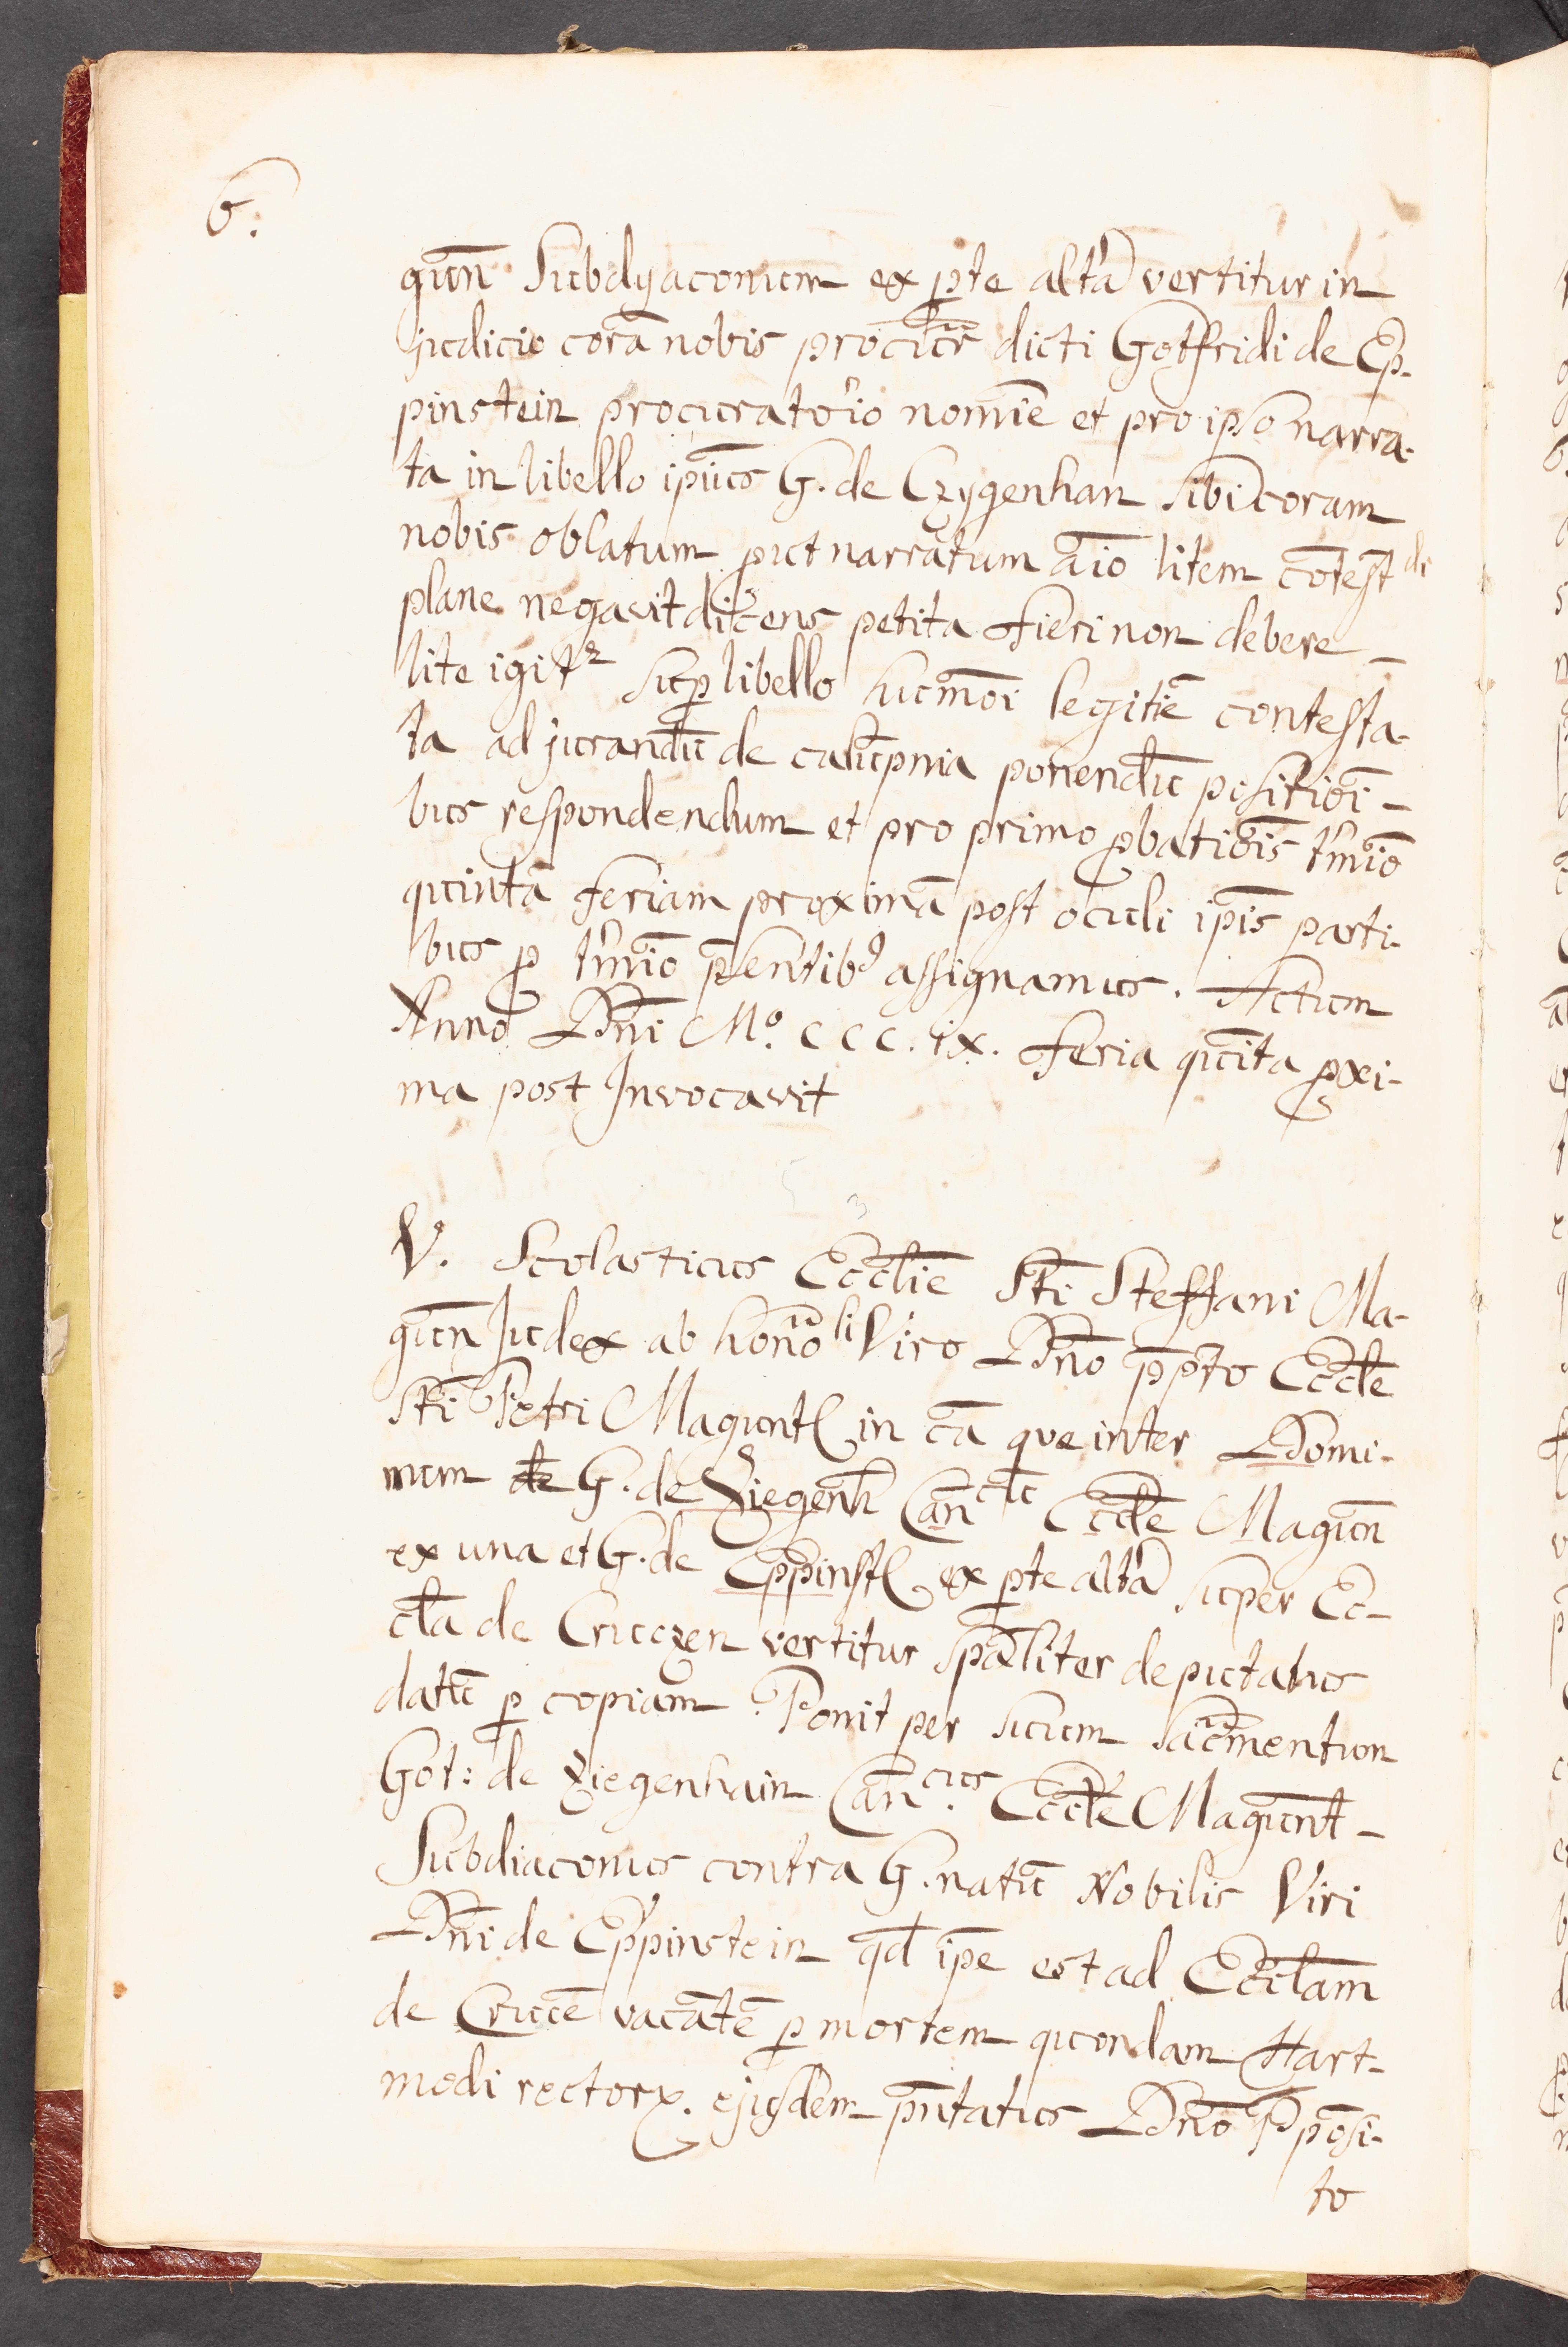 6.
gun̄ Subdyaconum ex pte altā vertitur in
judicio corā nobis procūr dicti Gotfridi de Ep-
pinstein procuratōrio nomīe et pro ipso narra-
ta in libello ipīus G. de Czygenhan sibi coram
nobis oblatum put narratum aīo litem cōtest di
plane negavit dicens petita fieri non debere
lite igitr sup libello humōi legitīe contesta-
ta ad jurandū de calūpnia ponendū positiōi-
bus respondendum et pro primo pbatiōis tm̄io
quintā feriam proximā post oculi ipīs parti-
bus p tm̄io pn̄tib9 assignamus. Actum
Anno Dn̄i Mo. CCC. ix. feria quīta pxi-
ma post Invocavit
V. Scolasticus Ecclīe Stī Steffani Ma-
gun̄ Judex ab honōli Viro Dn̄o ppto Eccle
Stī Petri Magunt in cā que inter Domi-
num de G. de Ziegenh Can̄cū Eccle Magun̄
ex una et G. de Eppinst ex pte altā super Ec-
cla de Cruczen vertitur spāliter deputatus
datū p copiam. Ponit per suum sacmentum
Got: de Ziegenhain Can̄.cus Eccle Magunt
Subdiaconus contra G. natū Nobilis Viri
Dn̄i de Eppinstein qd ipe est ad Ecclam
de Crucē vacātē p mortem quondam Hart-
modi rectorx. ejusdem pn̄tatus Dn̄o Pposi-
to